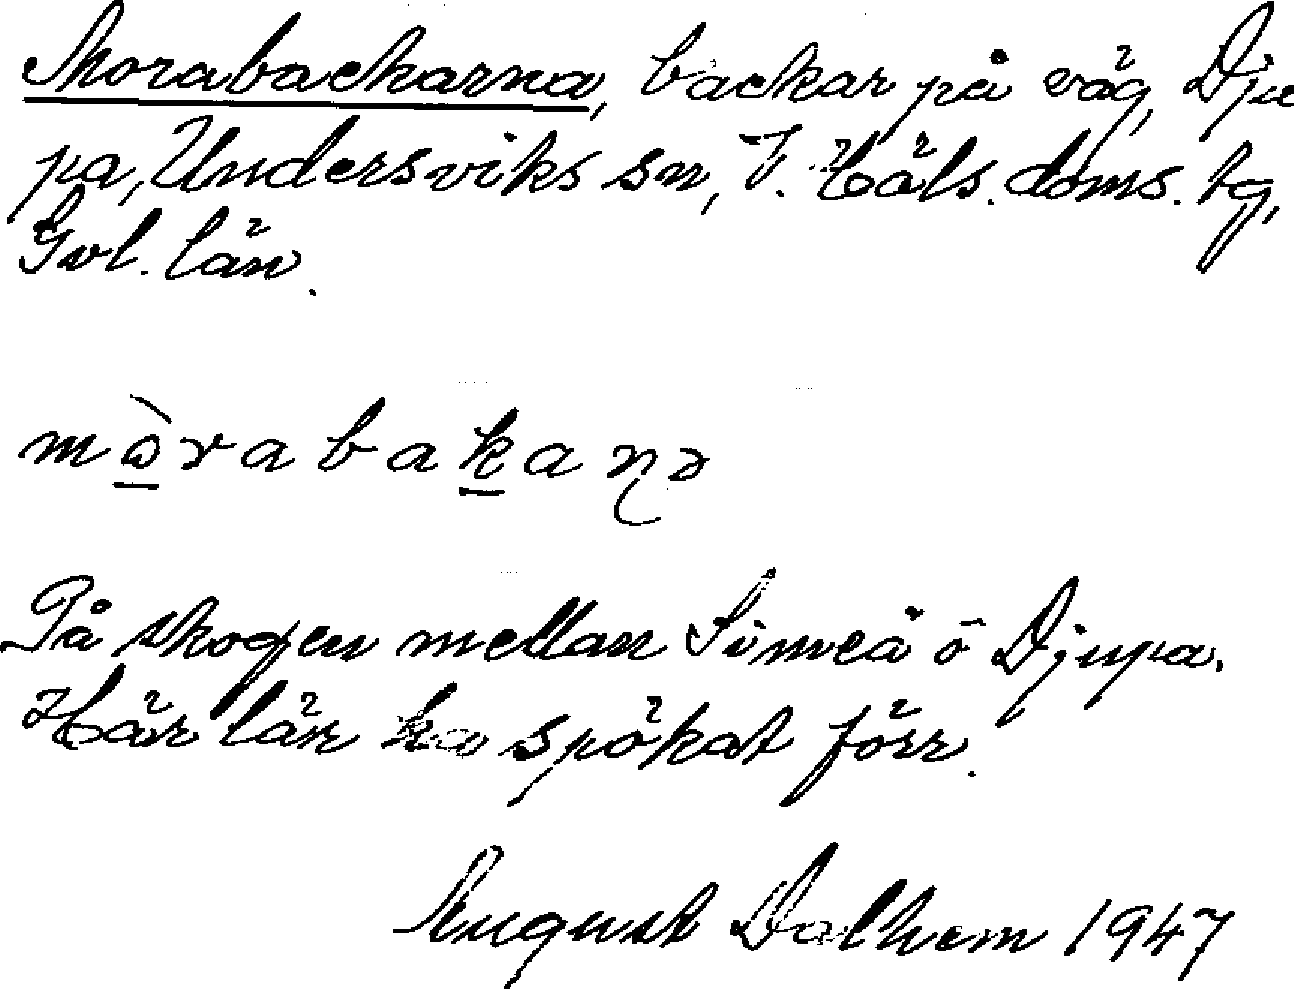 Morabackarna, backar på väg, Dju
pa, Undersviks sn, V. Häls. doms. tg,
Gvl. län.
mɷ̀rabakaɳə
På skogen mellan Simeå ō Djupa.
Här lär ha spökat förr.
August Dalhem 1947